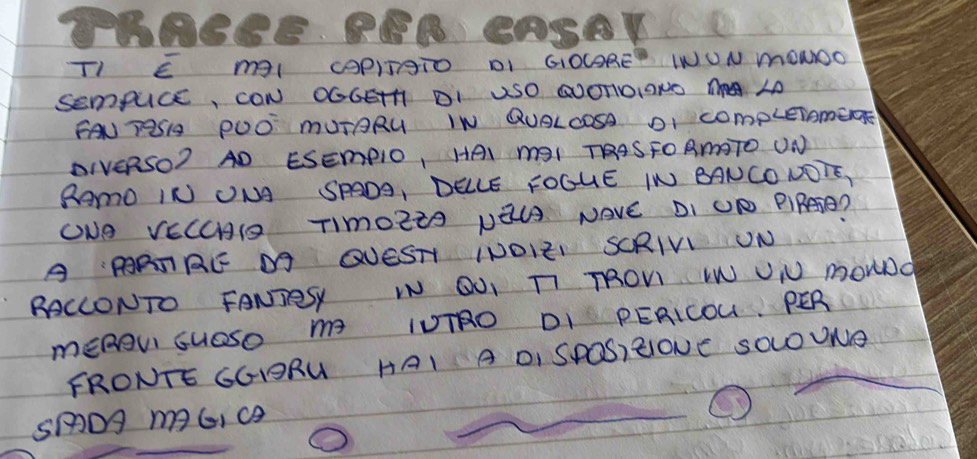 TRACCE PER CASA!
TI È MAI CAPITATO DI GIOCARE IN UN MONDO
SEMPLICE, CON OGGETTI DI USO QUOTIDIANO MA LA
FANTASIA PUÒ MUTARLI IN QUALCOSA DI COMPLETAMENTE
DIVERSO? AD ESEMPIO, HAI MAI TRASFORMATO UN
RAMO IN UNA SPADA, DELLE FOGLIE IN BANCONOTE,
UNA VECCHIA TINOZZA NELLA NAVE DI UN PIRATA?
A PARTIRE DA QUESTI INDIZI SCRIVI UN
RACCONTO FANTASY IN QUI TI TROVI IN UN MONDO
MERAVIGLIOSO MA INTRO DI PERICOLI. PER
FRONTEGGIARLI HAI A DISPOSIZIONE SOLO UNA
SPADA MAGICA